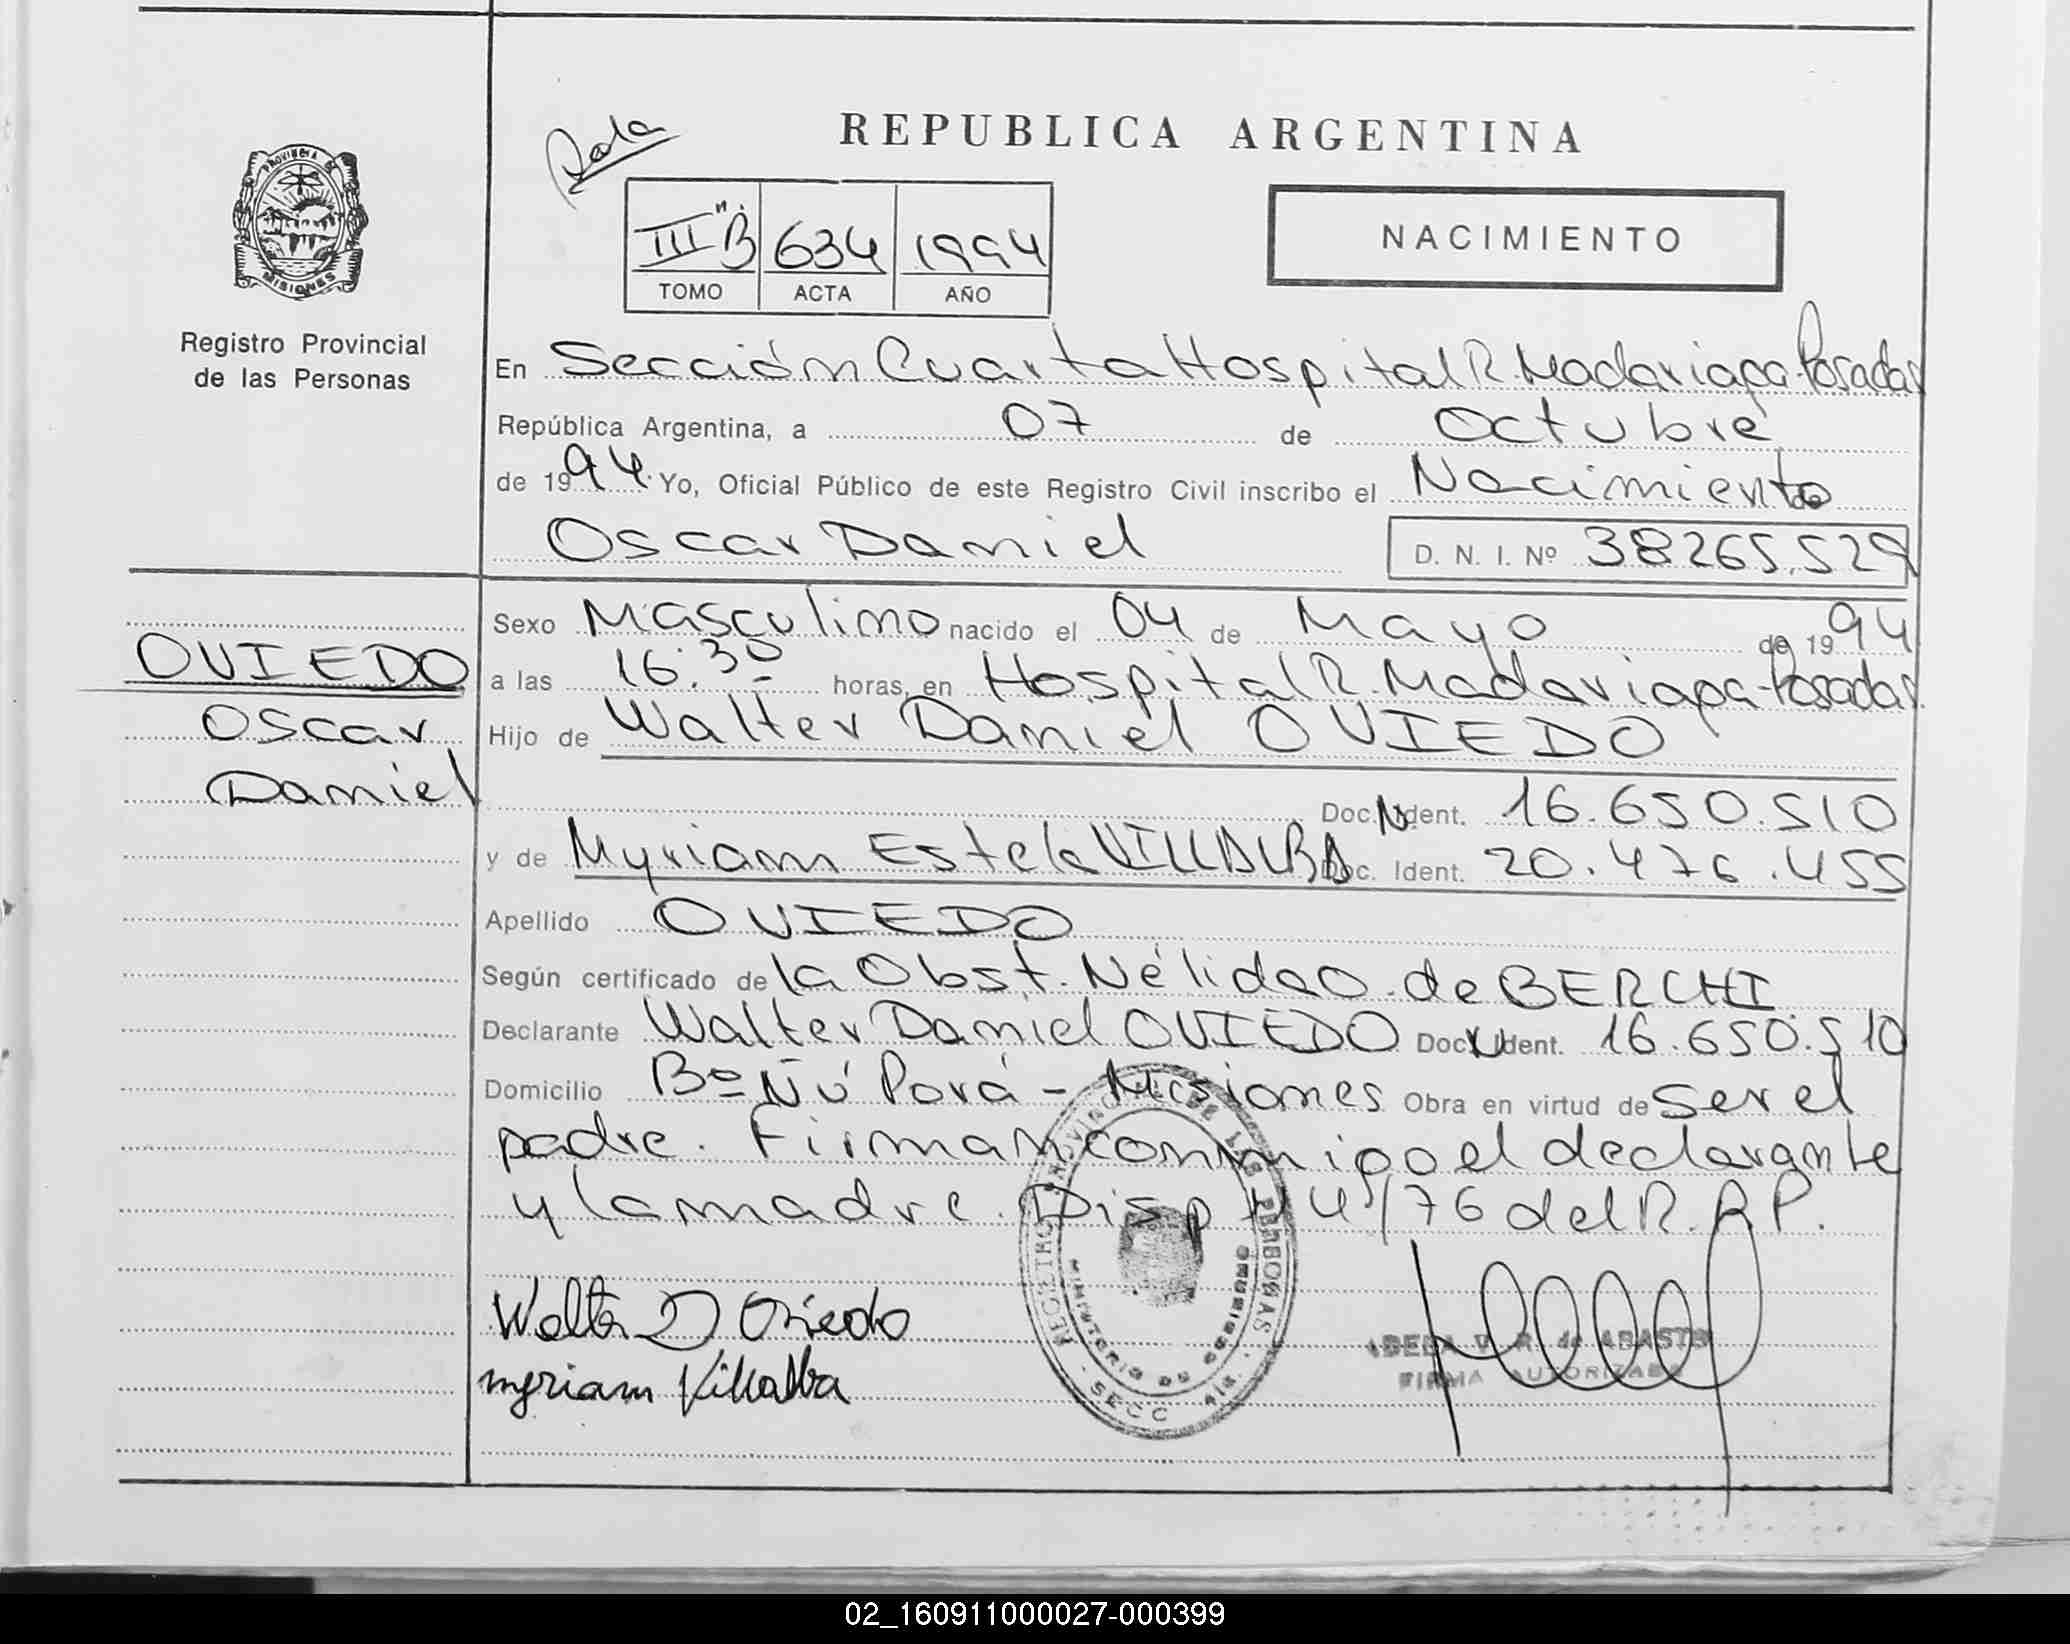 REPUBLICA ARGENTINA
PROVINCIA DE
MISIONES
Registro Provincial
de las Personas
III "B" 634 1994
TOMO ACTA AÑO
NACIMIENTO
En Sección Cuarta Hospital R. Madariaga-Posadas
República Argentina, a 07 de Octubre
de 1994. Yo, Oficial Público de este Registro Civil inscribo el Nacimiento de
Oscar Daniel D. N. I. Nº 38265.529
OVIEDO
Oscar
Daniel
Sexo Masculino nacido el 04 de Mayo de 1994
a las 16:30 horas, en Hospital R. Madariaga-Posadas
Hijo de Walter Daniel OVIEDO
Doc. N. Ident. 16.650.510
y de Myriam Estela VILLALBA Doc. Ident. 20.476.455
Apellido OVIEDO
Según certificado de la Obst. Nélida O. de BERCHI
Declarante Walter Daniel OVIEDO Doc. N Ident. 16.650.510
Domicilio Bº Ñú Porá - Misiones Obra en virtud de ser el
padre. Firman conmigo el declarante
y la madre. Disp Nº 4/76 del R.P.P.
Walter D Oviedo
myriam Villalba
REGISTRO PROVINCIAL DE LAS PERSONAS
MINISTERIO DE GOBIERNO
SECC 4ta.
V. R. de ABASTO
FIRMA AUTORIZADA
02_160911000027-000399